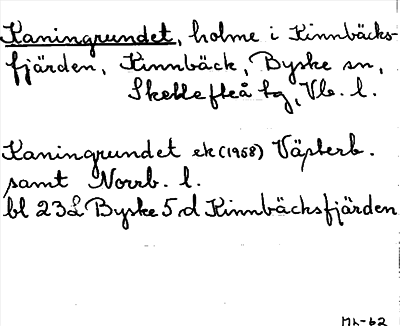 Kaningrundet, holme i Kinnbäcks-
fjärden, Kinnbäck, Byske sn,
Skellefteå tg, Vb. l.
Kaningrundet ek (1958) Västerb.
samt Norrb. l.
bl 23L Byske 5 d Kinnbäcksfjärden